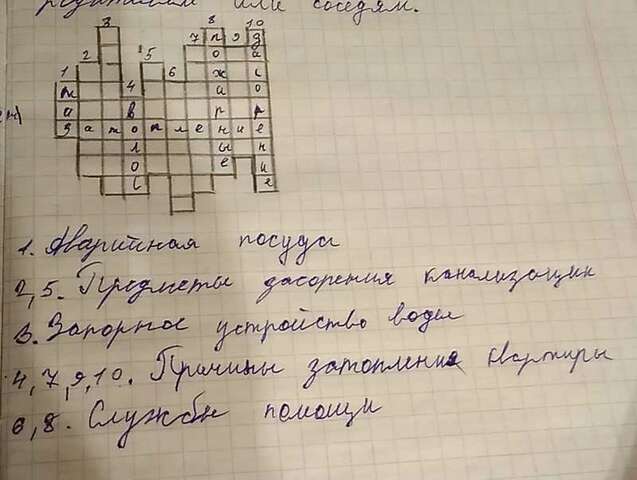 родителям или соседям.
3 8 10
7 п 9 з
2 5 о а
1 6 ж с
т 4 а о
а в р р
з а т о п л е н и е
л ы н
о е и
с е
1. Аварийная посуда
2, 5. Предметы засорения канализации
3. Запорное устройство воды
4, 7, 9, 10. Причины затопления квартиры
6, 8. Службы помощи